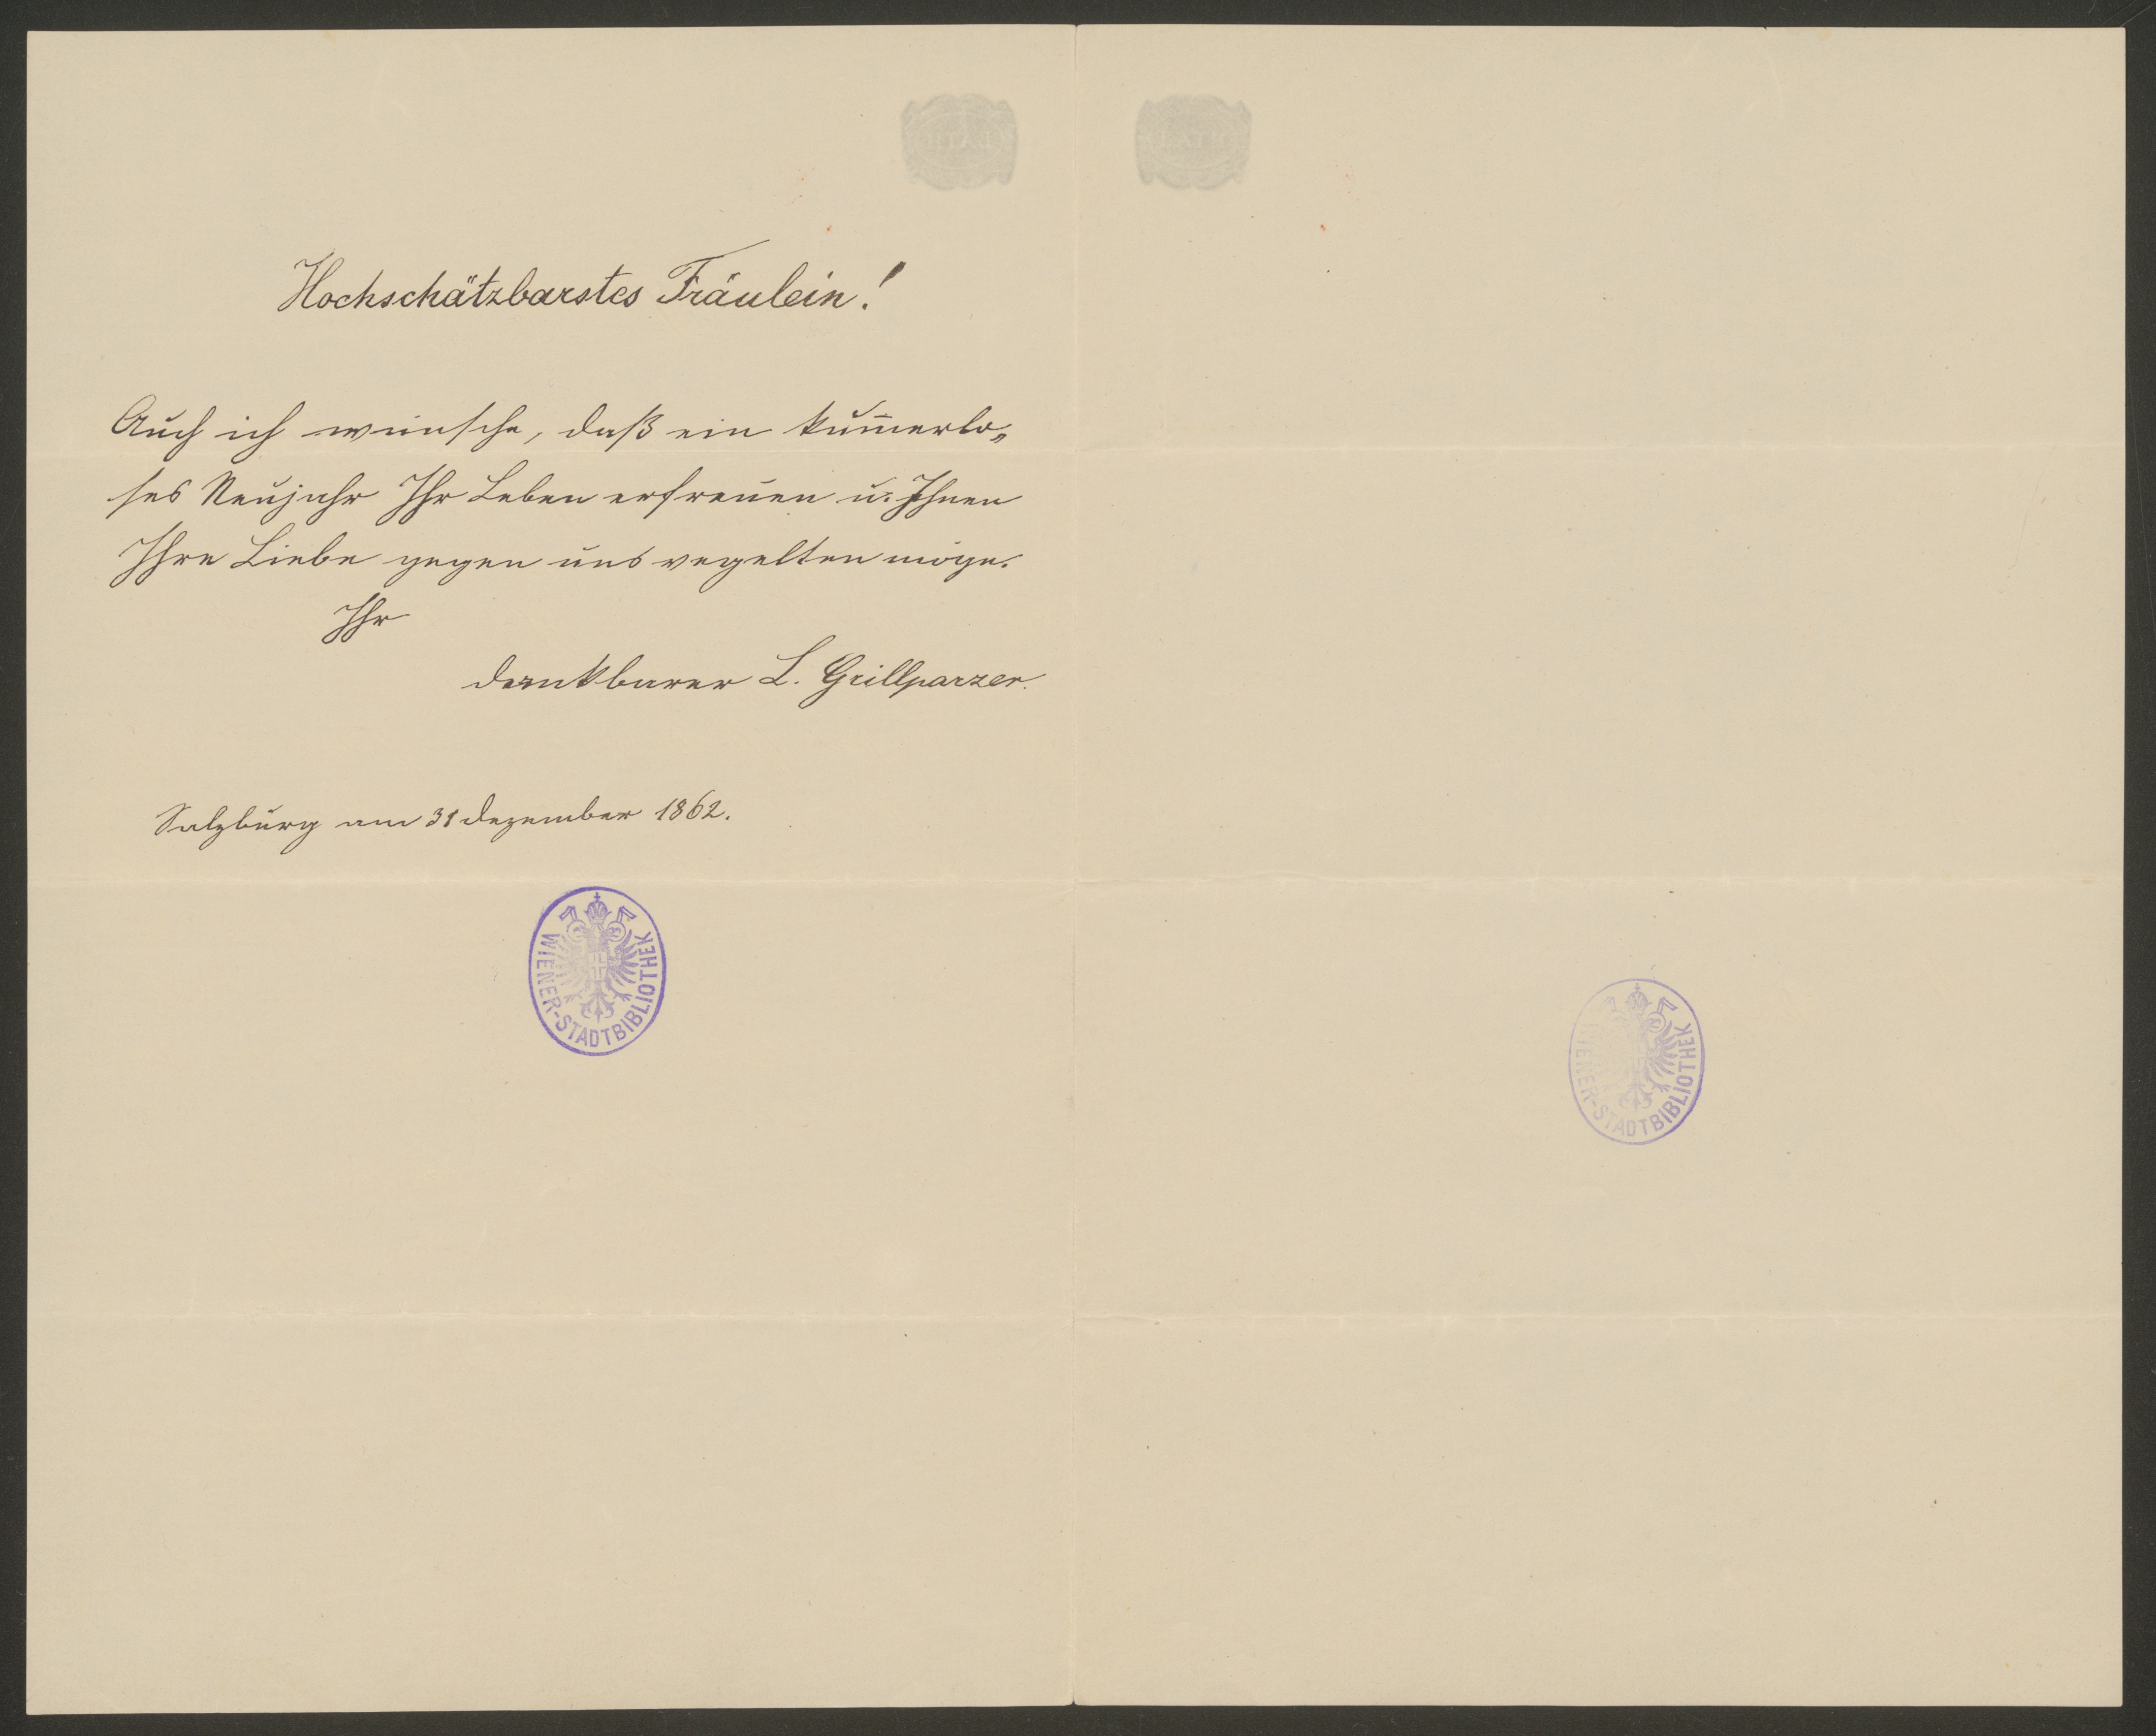 Hochschätzbarstes Fräulein!
Auch ich wünsche, daß ein kum̅erlo„
ses Neujahr Ihr Leben erfreuen u. Ihnen
Ihre Liebe gegen uns vegelten möge.
Ihr
dankbarer L. Grillparzer.
Salzburg am 31 Dezember 1862.
WIENER-STADTBIBLIOTHEK
WIENER-STADTBIBLIOTHEK